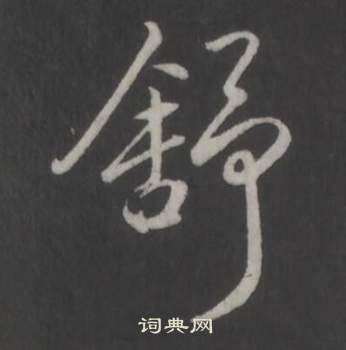 舒
词典网